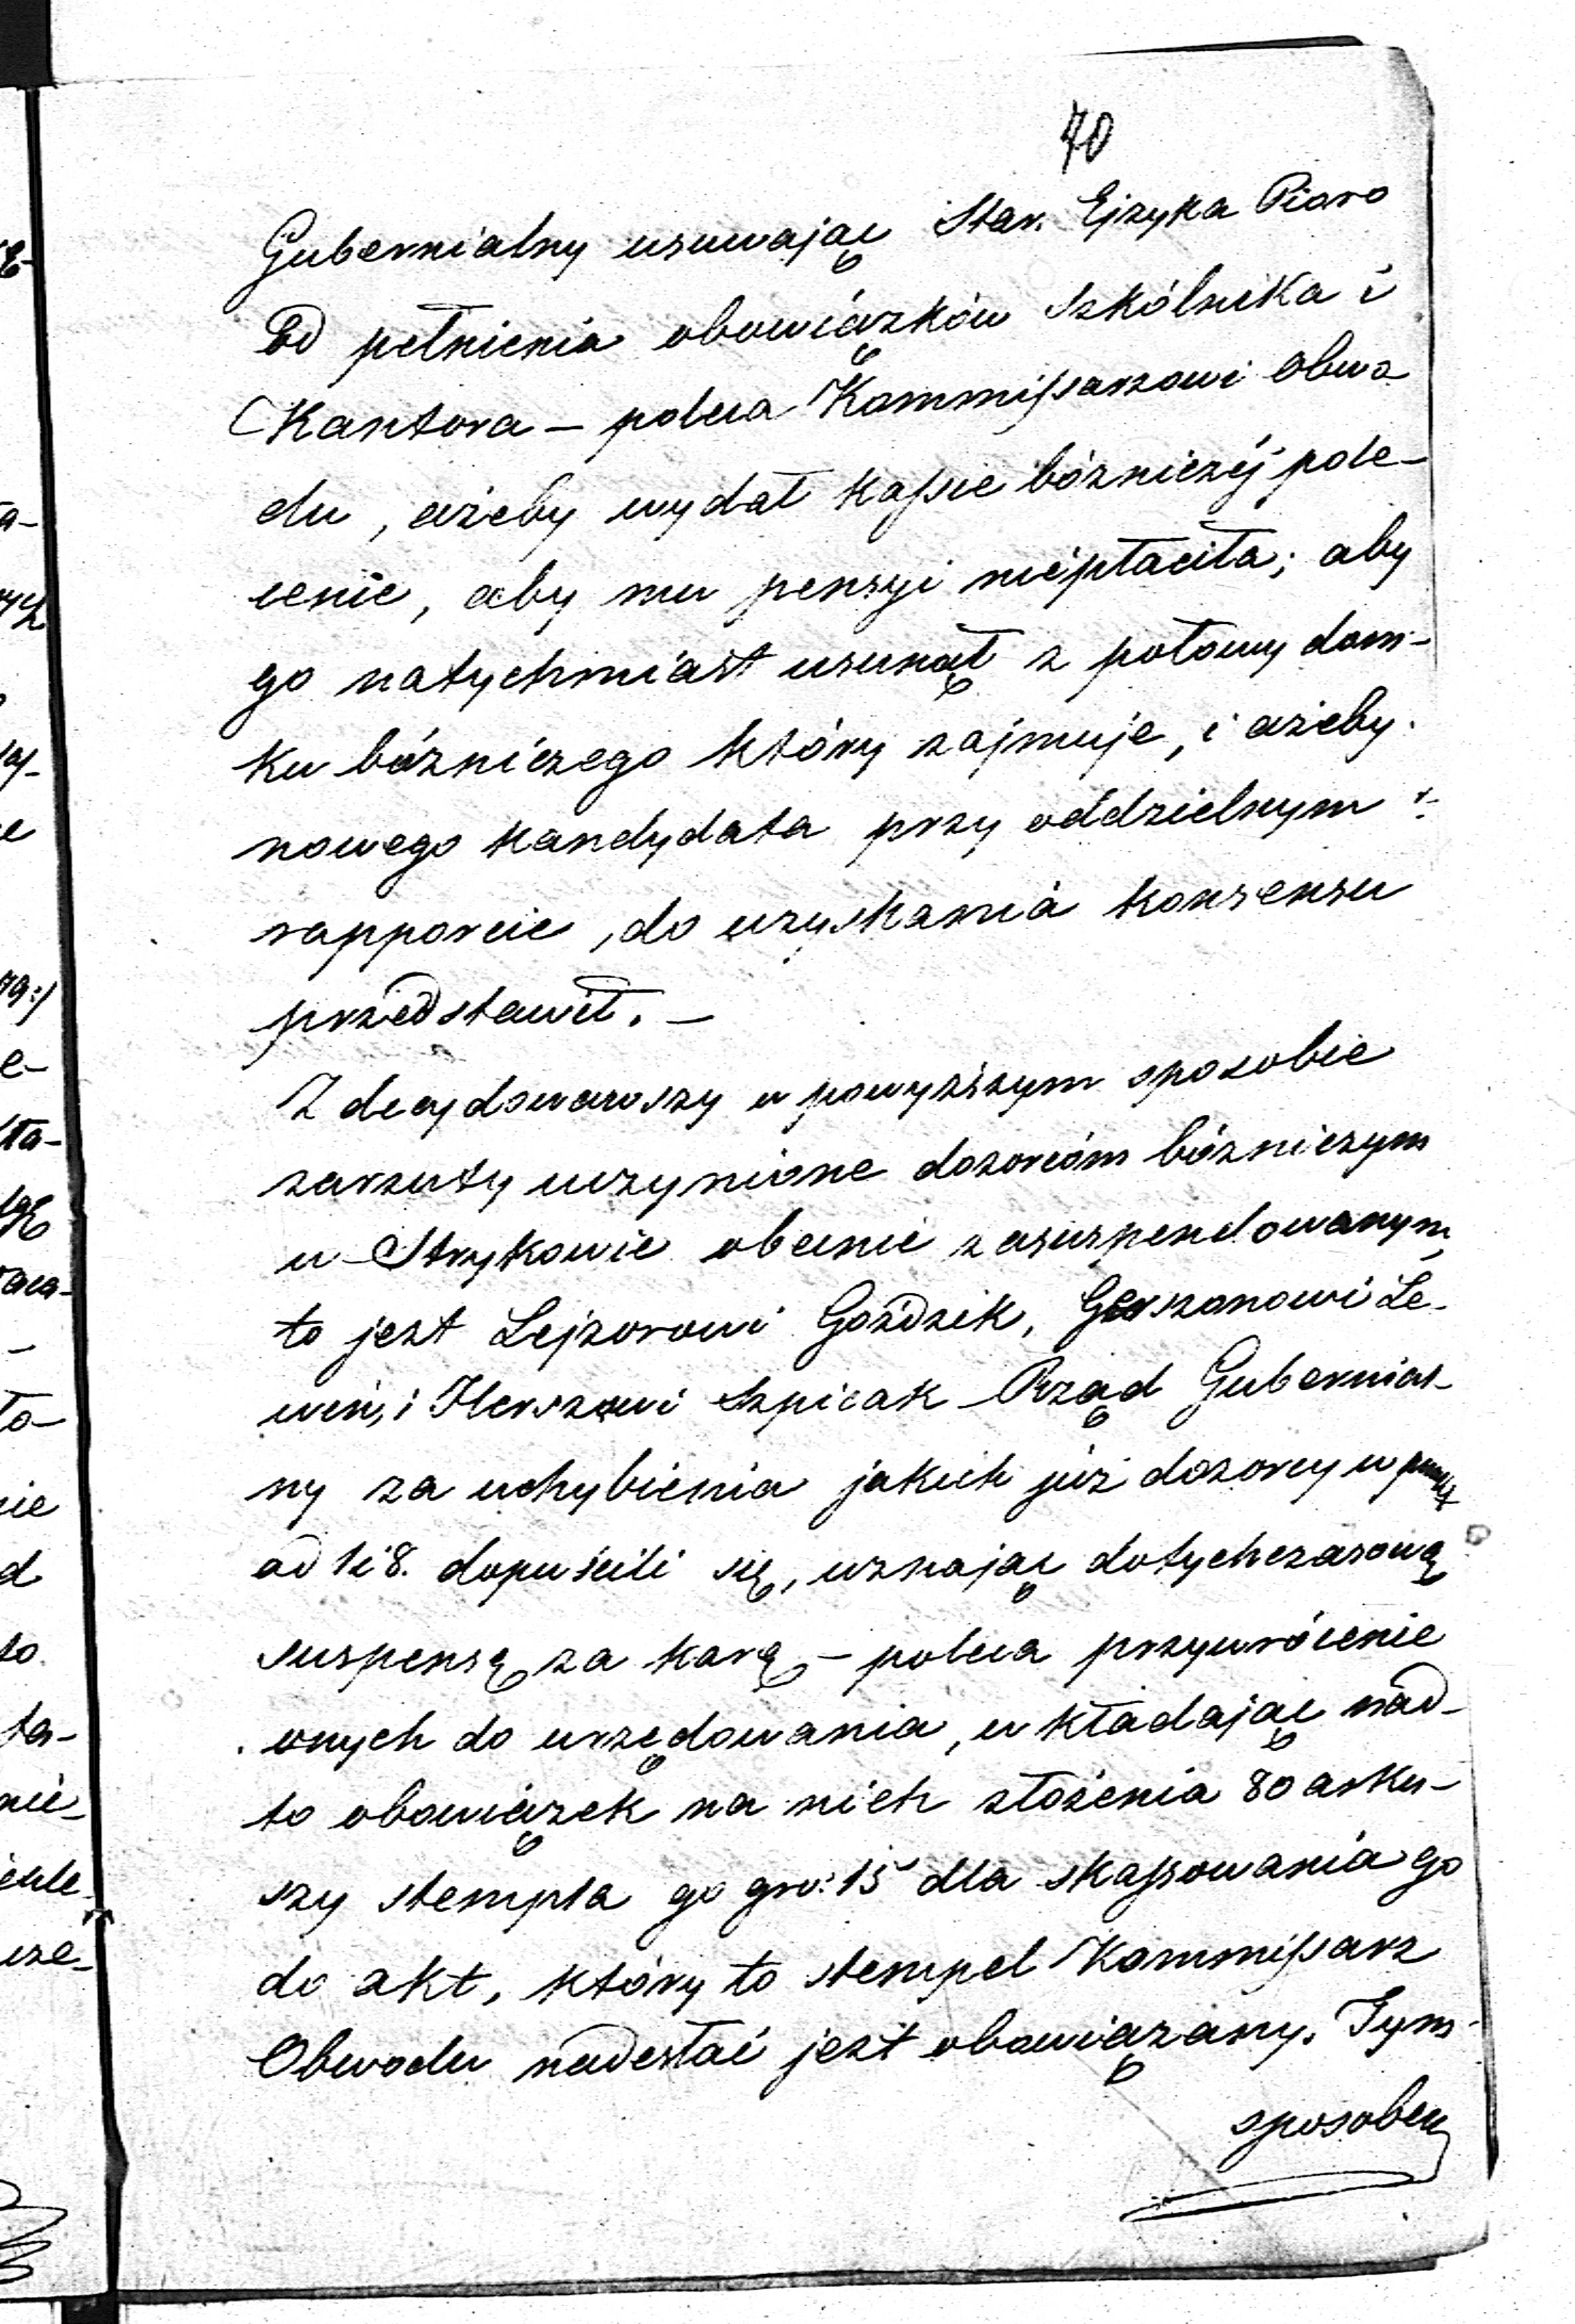 70
Gubernialny usuwając Star. Ejzyka Pioro
Od pełnienia obowiązków Szkólnika i
Kantora – poleca Kommissarzowi obwo
du, ażeby wydał kassie bóżniczéj pole-
cenie, aby mu pensyi niepłaciła; aby
go natychmiast usunął z połowy dom-
ku bóżniczego który zajmuje, i ażeby
nowego kandydata przy oddzielnym
rapporcie, do uzyskania konsensu
przedstawił. –
Zdecydowawszy w powyższym sposobie
zarzuty uczynione dozorcóm bóżniczym
w Strykowie obecnie zasuspendowanym,
to jest Lejzorowi Goździk, Gerszonowi Le-
win, i Herszowi Szpicak Rząd Gubernial-
ny za uchybienia jakich już dozorcy w
ad 1 i 8. dopuścili się, uznając dotychczasową
suspensę za karę – poleca przywrócenie
onych do urzędowania, wkładając nad-
to obowiązek na nich złożenia 80 arku-
szy stempla go gro: 15 dla skassowania go
do akt, który to stempel Kommissarz
Obwodu nadesłać jest obowiązany. Tym
sposobem